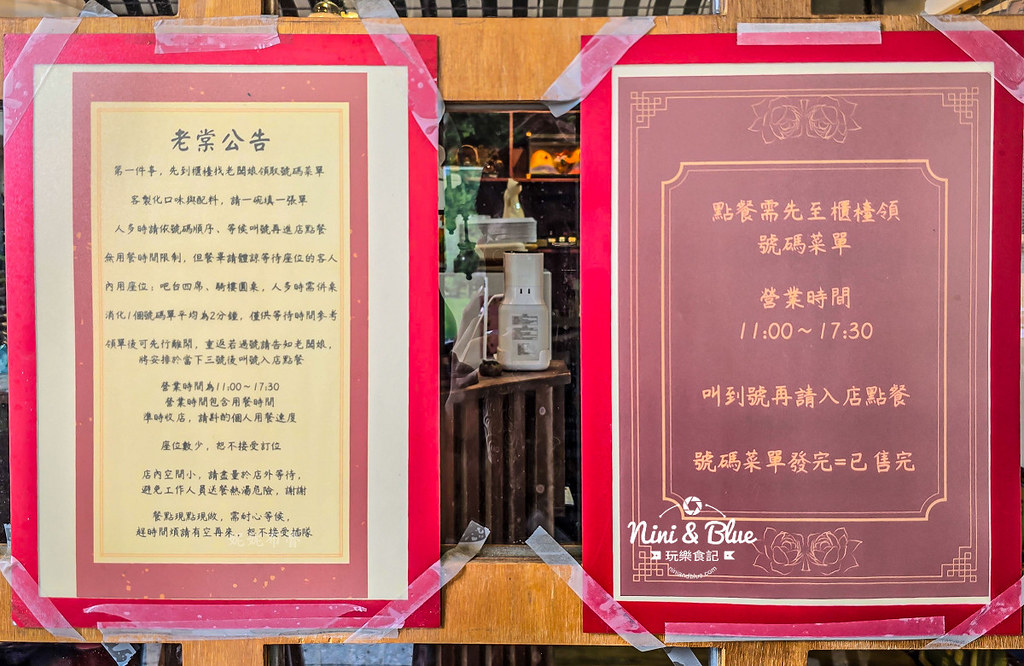 老棠公告
第一件事，先到櫃檯找老闆娘領取號碼菜單
客製化口味與配料，請一碗填一張單
人多時請依號碼順序、等候叫號再進店點餐
無用餐時間限制，但餐畢請體諒等待座位的客人
內用座位：吧台四席、騎樓圓桌，人多時需併桌
消化1個號碼單平均為2分鐘，僅供等待時間參考
領單後可先行離開，重返若過號請告知老闆娘，
將安排於當下三號後叫號入店點餐
營業時間為11:00～17:30
營業時間包含用餐時間
準時收店，請斟酌個人用餐速度
座位數少，恕不接受訂位
店內空間小，請盡量於店外等待，
避免工作人員送餐熱湯危險，謝謝
餐點現點現做，需耐心等候，
趕時間煩請有空再來，恕不接受插隊
點餐需先至櫃檯領
號碼菜單
營業時間
11:00～17:30
叫到號再請入店點餐
號碼菜單發完=已售完
Nini & Blue
玩樂食記
niniandblue.com